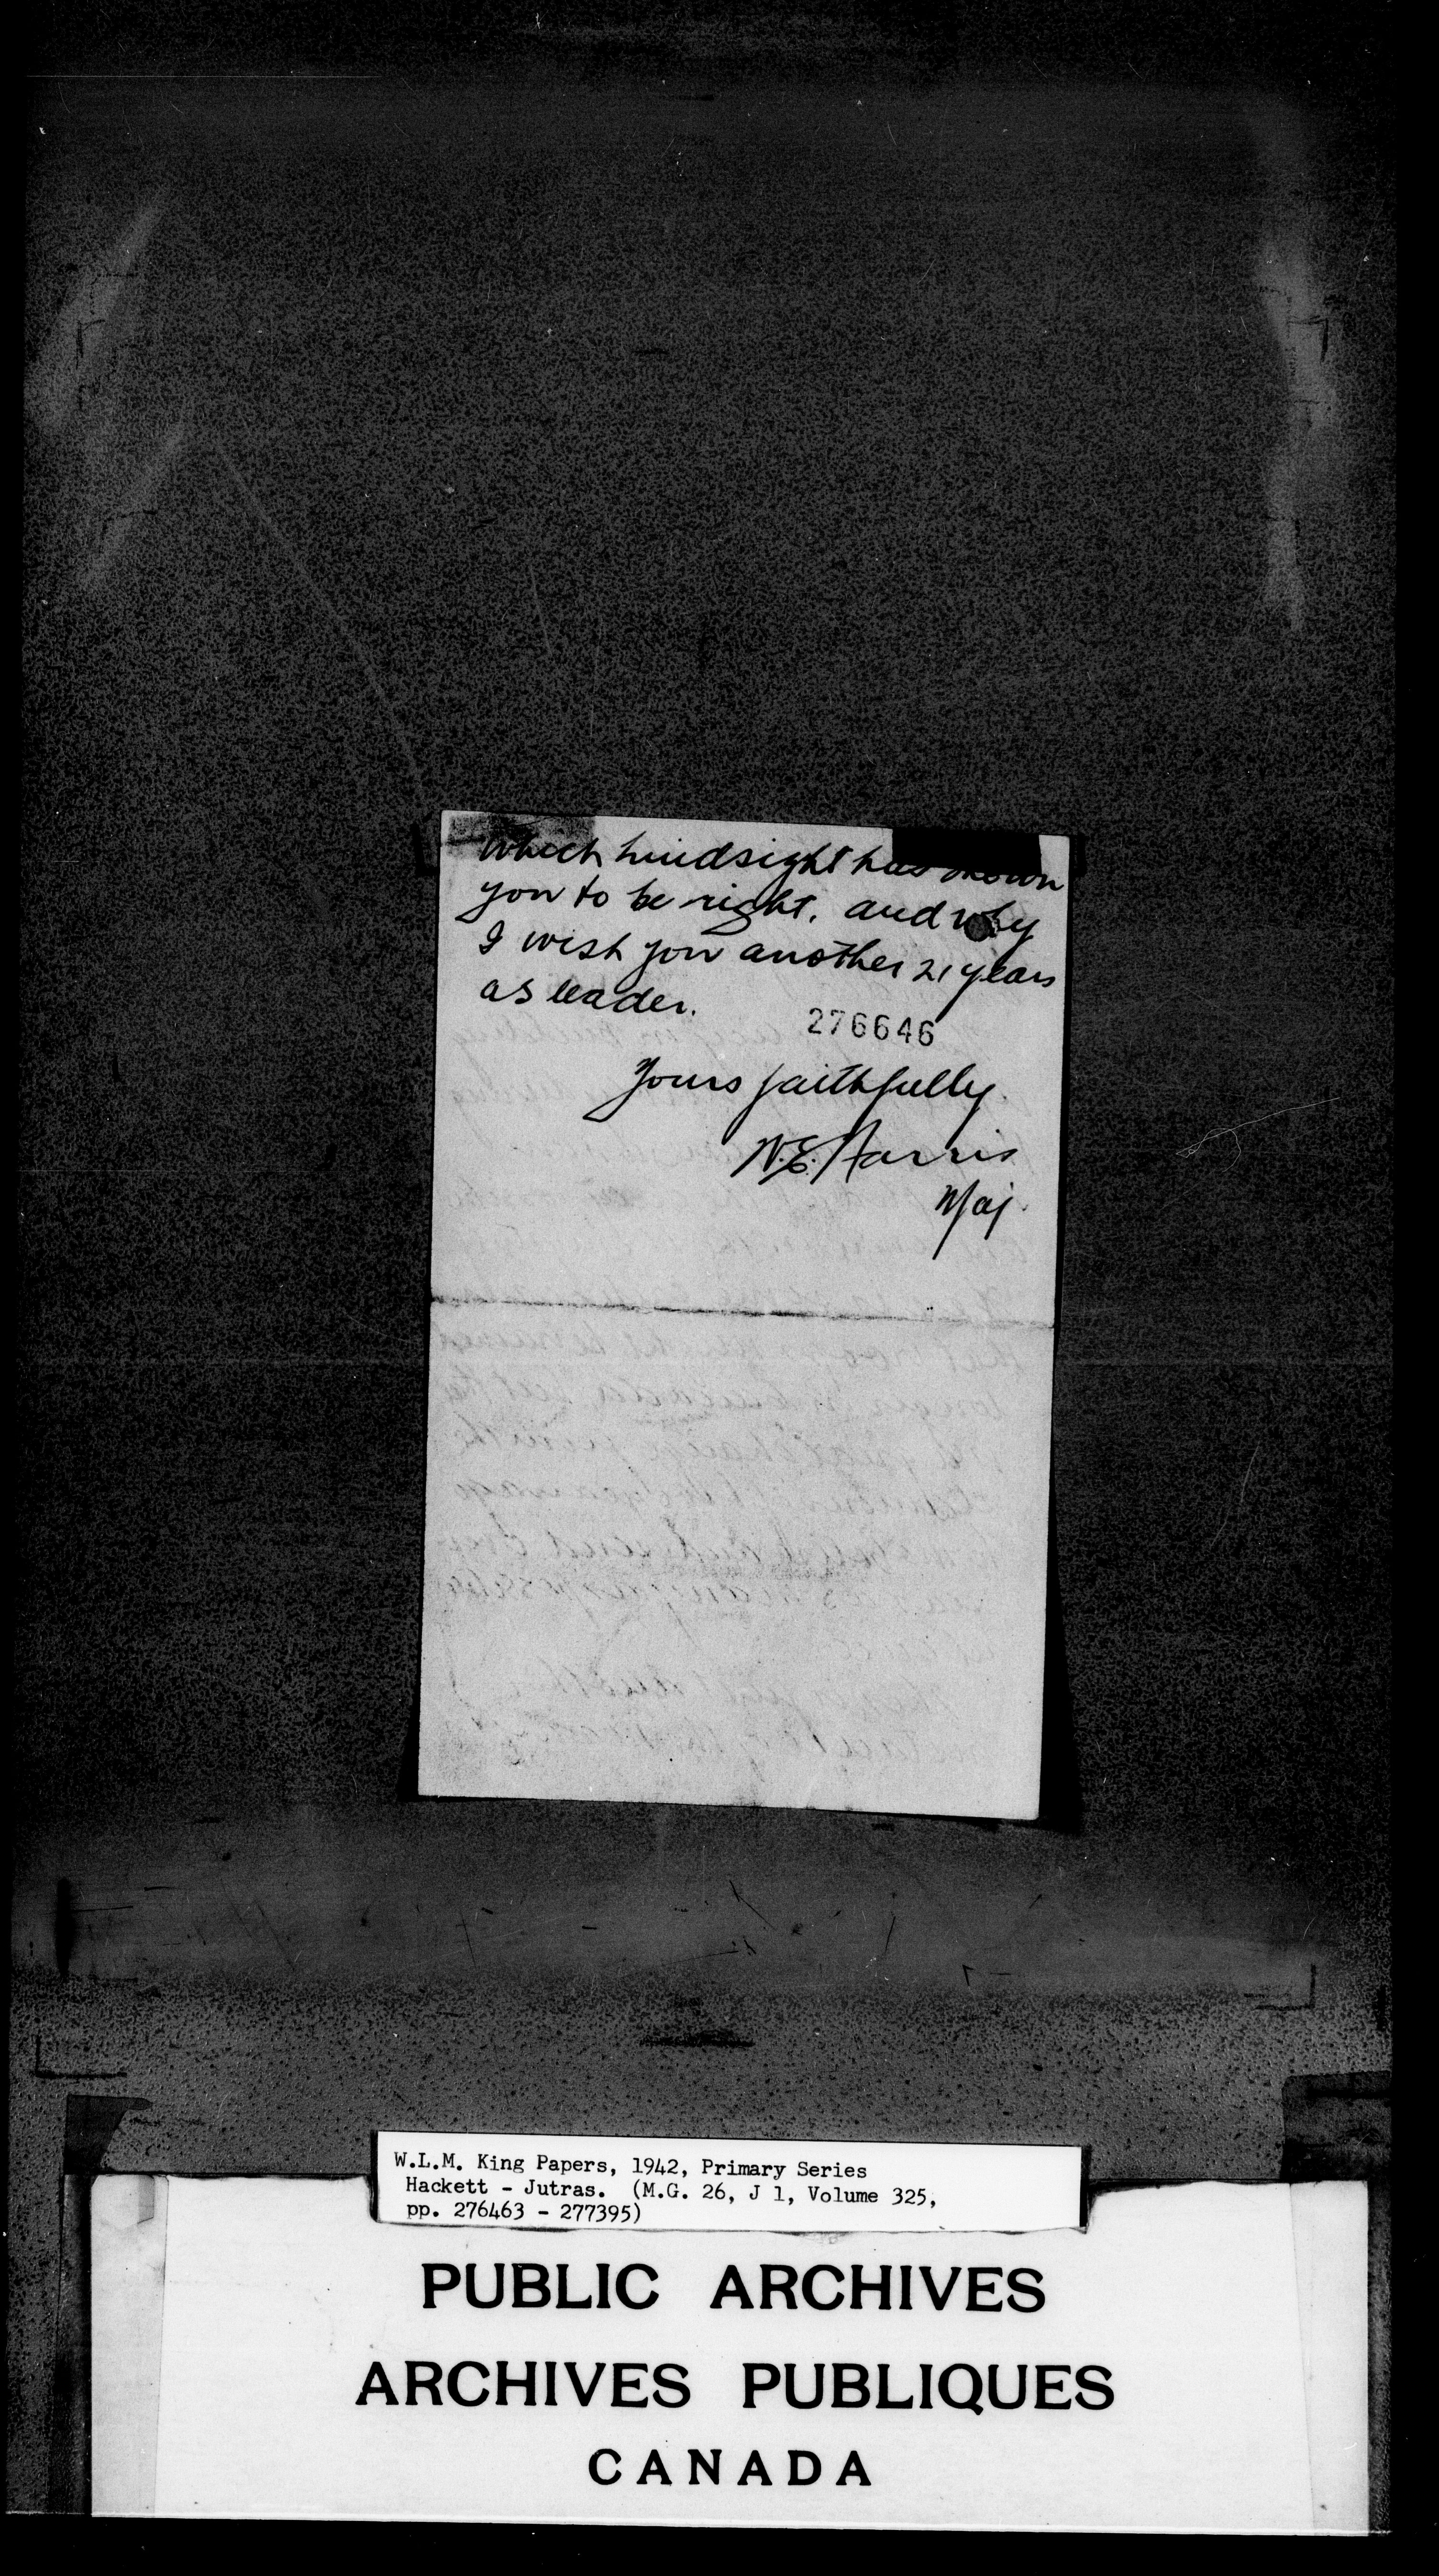 which hindsight has shown
you to be right. and why
I wish you another 21 years
as leader.
276646
Yours faithfully.
W.E. Harris
Maj.
W.L.M. King Papers, 1942, Primary Series
Hackett - Jutras. (M.G. 26, J 1, Volume 325,
pp. 276463 - 277395)
PUBLIC ARCHIVES
ARCHIVES PUBLIQUES
CANADA